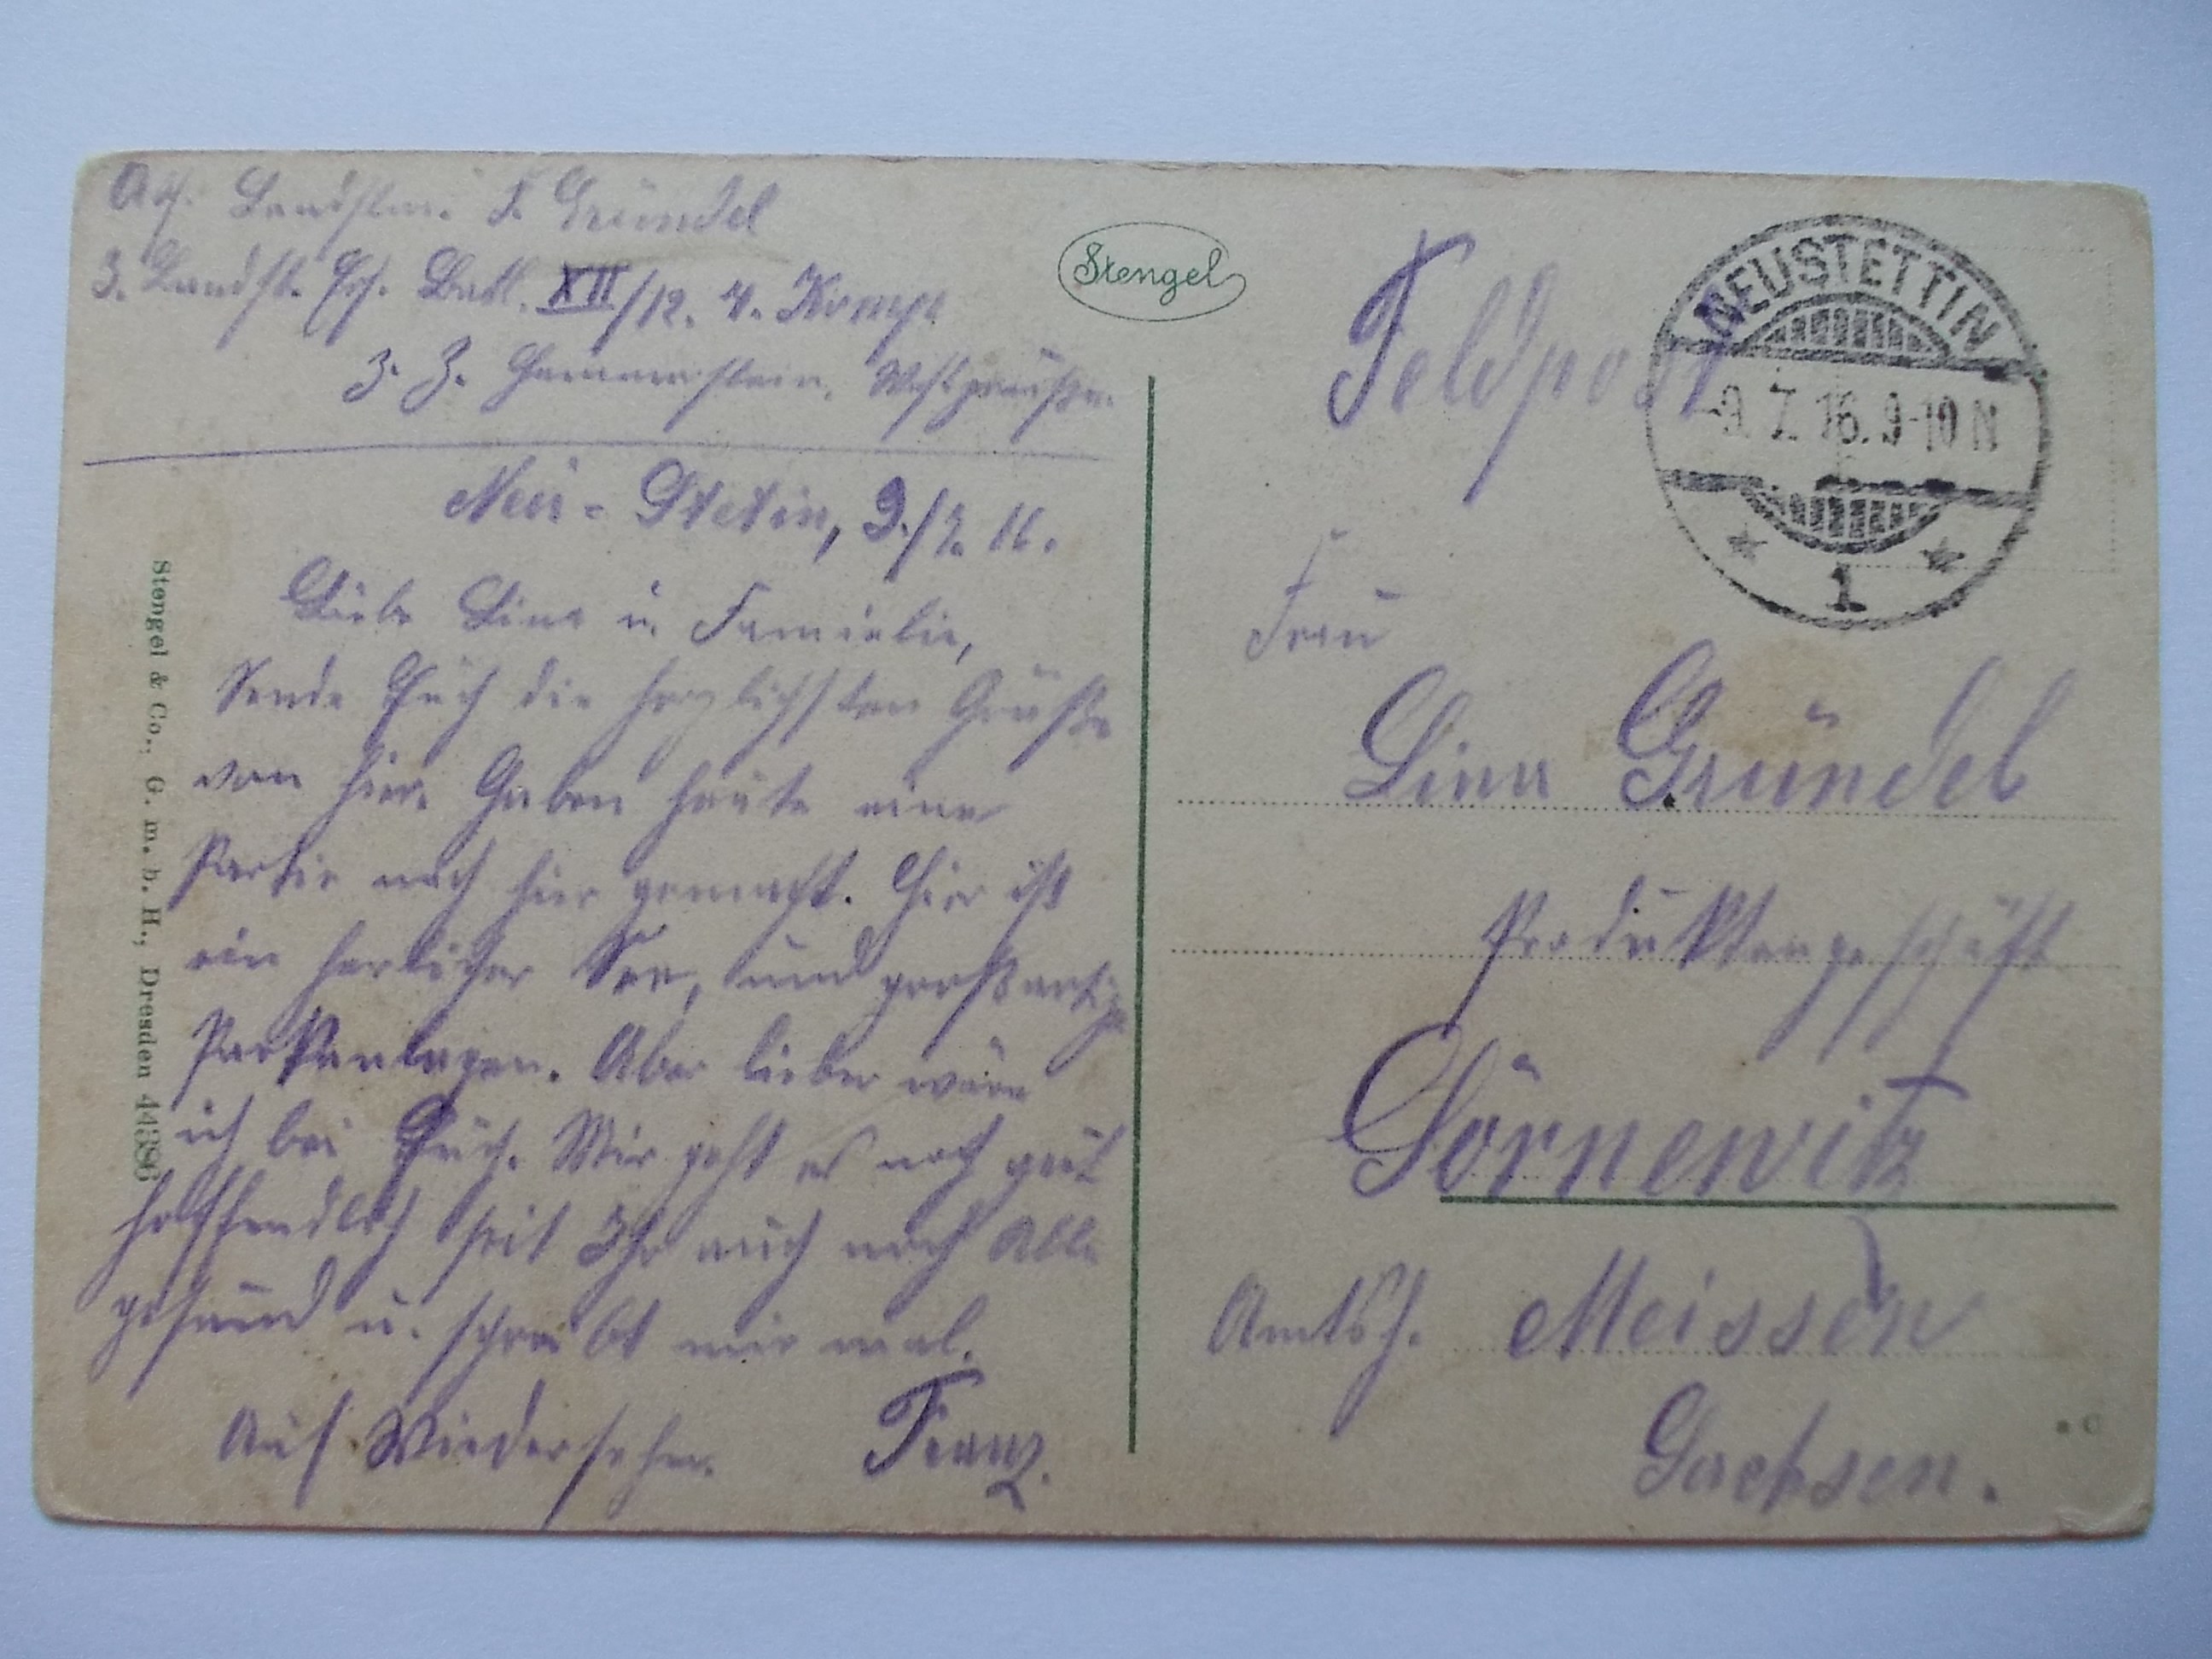 Abs: Landstm. F. Gründel
3. Landst. Ers. Batl. XII/12. 4. Komp.
z. Z. Hammerstein, Westpreußen.
Neu-Stetin, 9./7. 16.
Liebe Lina u. Familie,
Sende Euch die herzlichsten Grüße
von hier. Haben heute eine
Partie nach hier gemacht. Hier ist
ein herlicher See, und großartige
Parkanlagen. Aber lieber wäre
ich bei Euch. Mir geht es noch gut
hoffendlich seit Ihr auch noch alle
gesund u. schreibt mir mal.
Auf Wiedersehn. Franz.
Stengel & Co., G. m. b. H., Dresden 44386
Stengel
Feldpost
NEUSTETTIN
-9. 7. 16. 9-10 N
* 1 *
Frau
Lina Gründel
Produktengeschäft
Sörnewitz
Amtsh. Meissen
Sachsen.